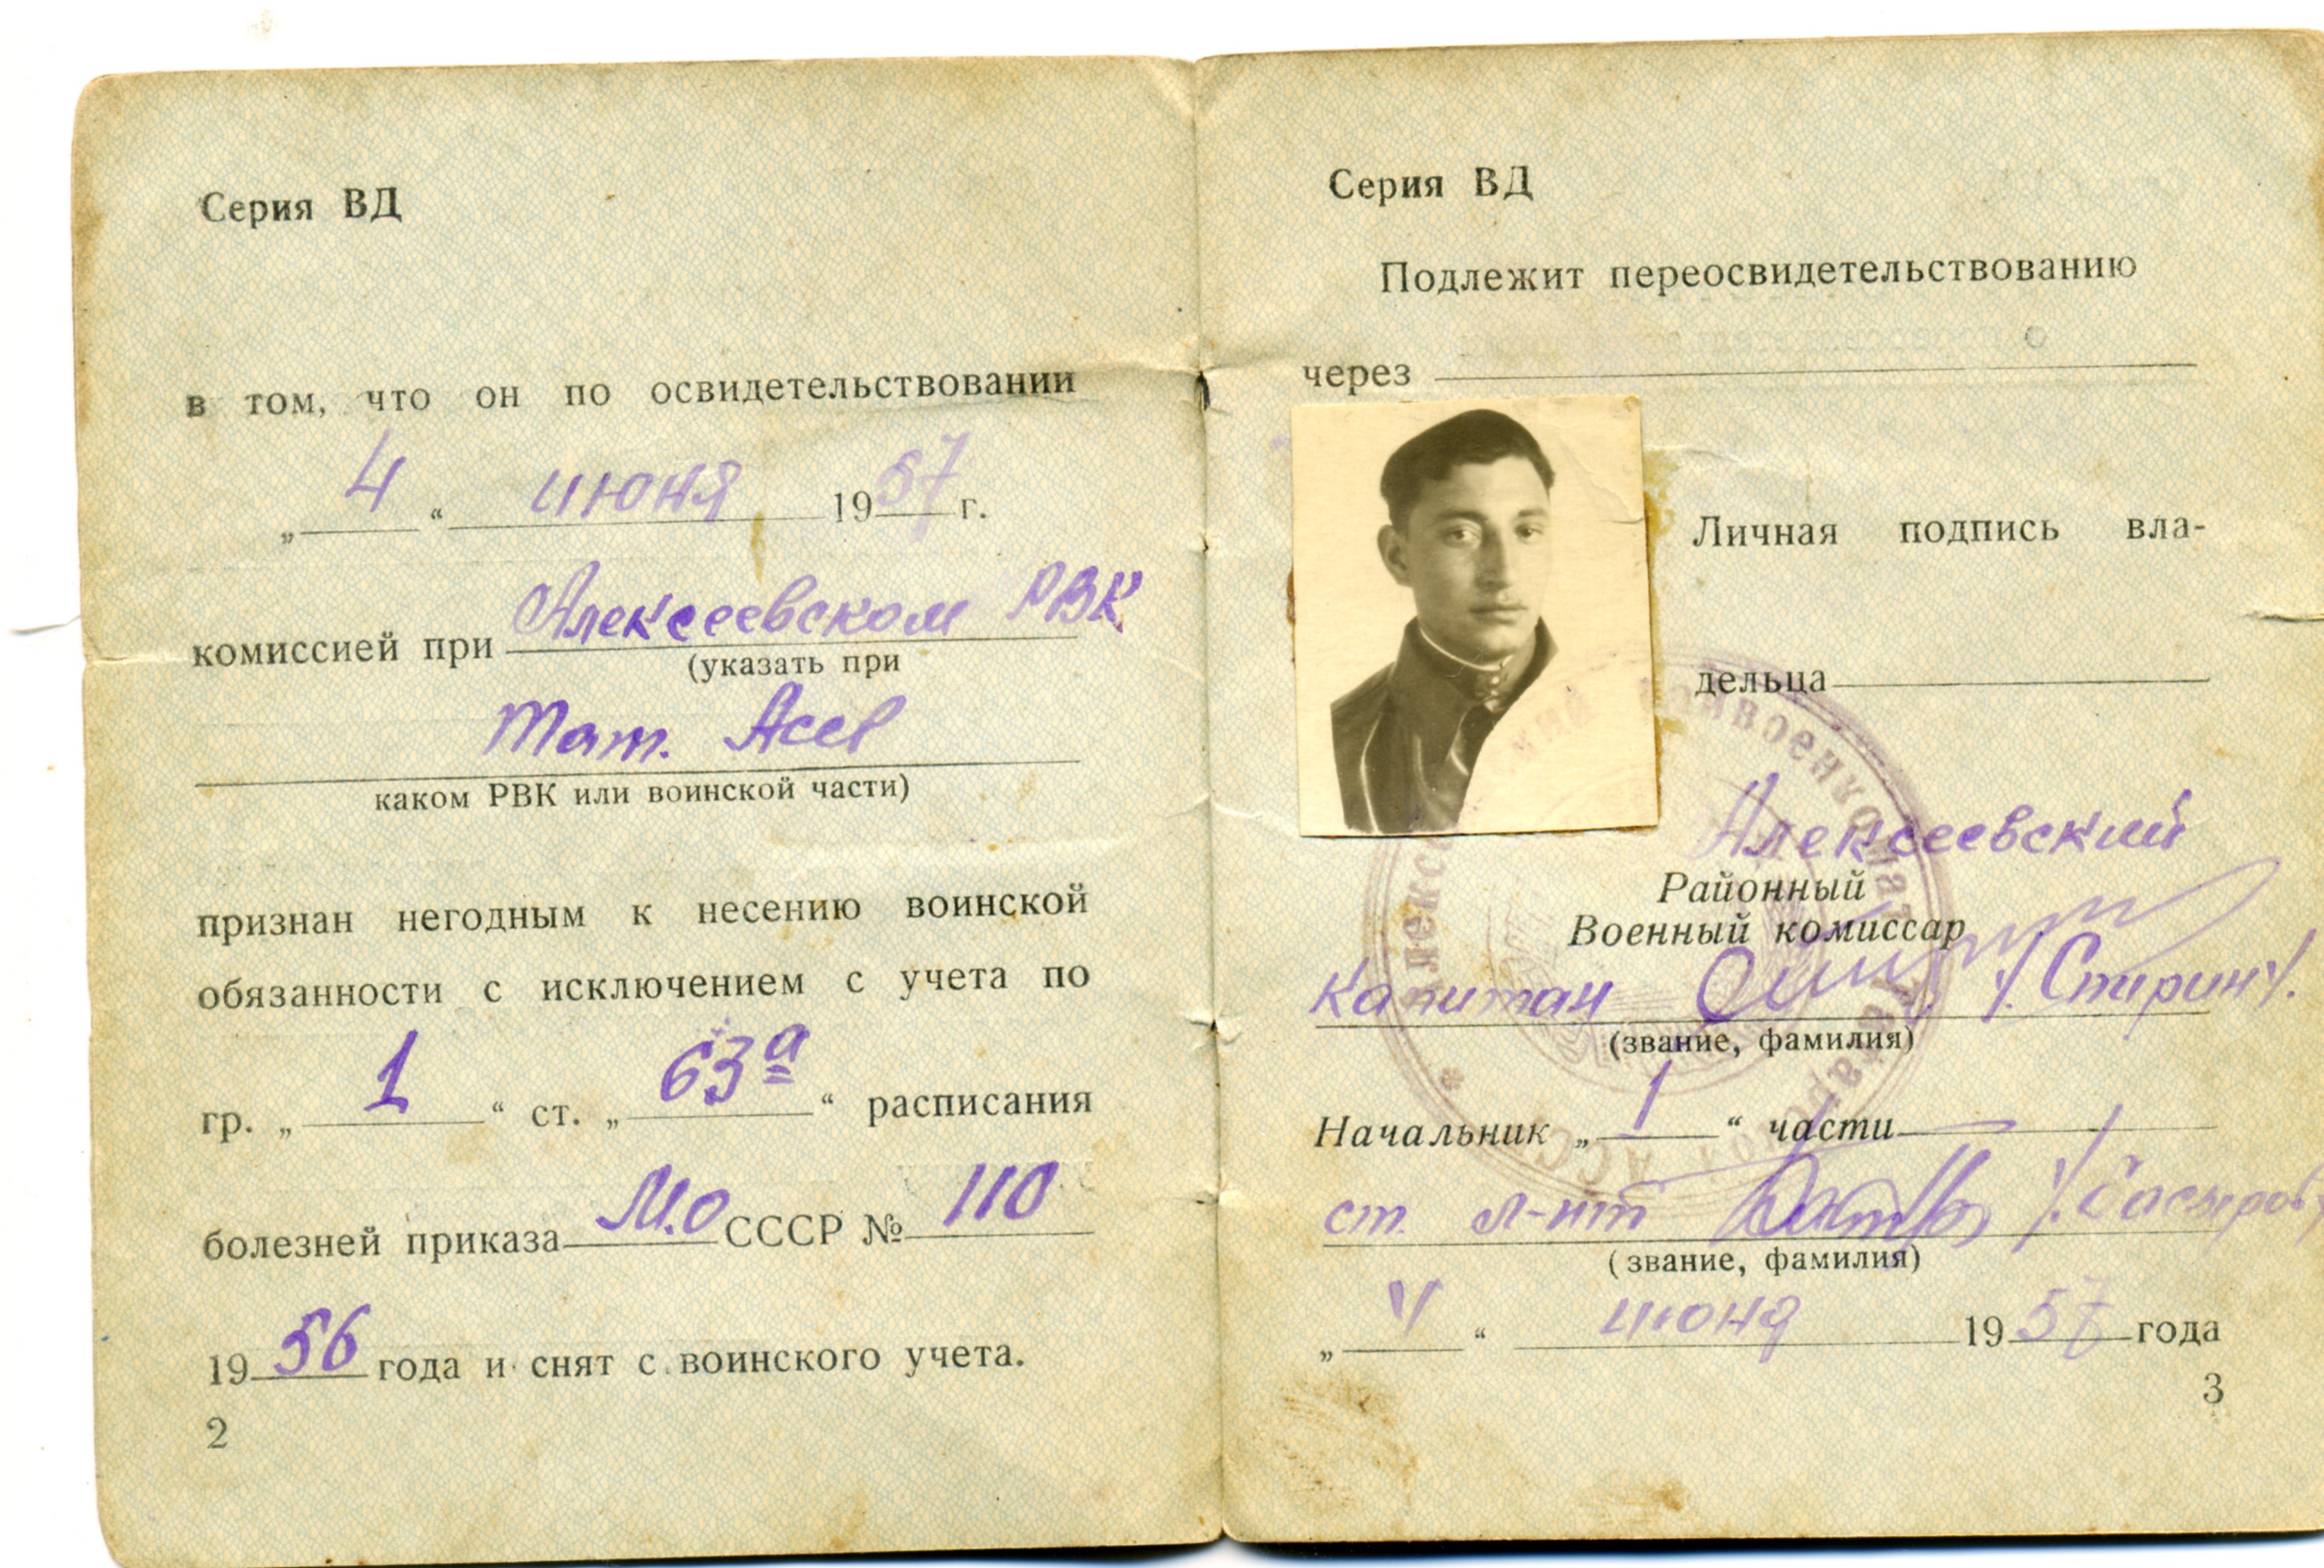 Серия ВД
в том, что он по освидетельствовании
„ 4 “ июня 1957 г.
комиссией при Алексеевском РВК
(указать при
Тат. Асср
каком РВК или воинской части)
признан негодным к несению воинской
обязанности с исключением с учета по
гр. „ 1 “ ст. „ 63а “ расписания
болезней приказа М.О СССР № 110
1956 года и снят с воинского учета.
2
Серия ВД
Подлежит переосвидетельствованию
через
Личная подпись вла-
дельца
Алексеевский
Районный
Военный комиссар
капитан /Спирин/.
(звание, фамилия)
Начальник „ 1 “ части
ст. л-нт /Басыров/
(звание, фамилия)
„ 4 “ июня 1957 года
3